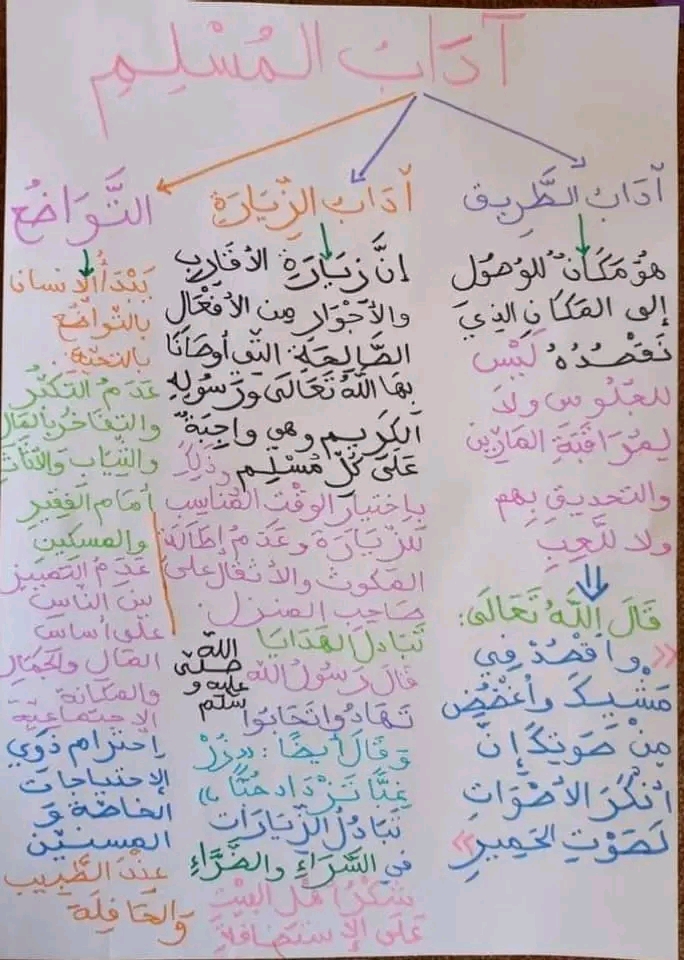 آدَابُ المُسْلِمِ
آدَابُ الطَّرِيقِ
هُوَ مَكَانٌ لِلوُصُولِ
إلى المَكَانِ الذِي
نَقْصُدُهُ لَيْسَ
للجُلُوسِ ولَا
لِمُرَاقَبَةِ المَارِّينَ
والتحديقِ بِهِم
ولا للَّعِبِ
قَالَ اللَّهُ تَعَالَى:
«واقْصُدْ فِي
مَشْيِكَ واُغْضُضْ
مِنْ صَوتِكَ إنَّ
أَنْكَرَ الأصْوَاتِ
لَصَوْتُ الحَمِيرِ»
آدَابُ الزِّيَارَةِ
إنَّ زِيَارَةَ الأقَارِبِ
والأجْوَارِ مِنَ الأفْعَالِ
الصَّالِحَةِ التي أوصَانَا
بِهَا اللَّهُ تَعَالَى وَرَسُولِهِ
الكَرِيم وهي واجِبَةٌ
عَلَى كُلِّ مُسْلِمٍ وذلِكَ
بِاختِيَارِ الوقْتِ المُنَاسِبِ
للزِّيَارَةِ وعَدَمُ إطَالَةَ
المكوث والأثقال على
صَاحِبِ المنزل.
تَبَادل الهَدَايَا
قَالَ رَسُولُ اللَّهِ صلَّى الله عليه و سلم
تَهَادُوا تَحَابُوا
وَقَالَ أيضًا: «زُرْ
غِبًّا تَزْدَادْ حُبًّا»
تَبَادُلُ الزِّيَارَاتِ
في السَّرَاءِ والضَّرَّاءِ
شُكْرُ أهْلِ البَيْتِ
عَلَى الإستضَافَةِ
التَّوَاضُعُ
يَبْدَأُ الإنسان
بالتواضُعِ
بالتحيّةِ
عَدَمُ التكَبُّرِ
والتفاخُرِ بالمَالِ
والثِّيَابِ والأثَاث
أمَامَ الفَقِيرِ
والمِسكِينِ
عَدَمُ التَّمييز
بينَ النَّاسِ
علَى أسَاسِ
المَالِ والجَمَالِ
والمكَانَة
الإجتمَاعِيَّة
إحْتِرَام ذَوي
الإحتيَاجَات
الخَاصَّة وَ
المُسِنِّينَ
عِنْدَ الطَّبِيب
وَالحَافِلَة